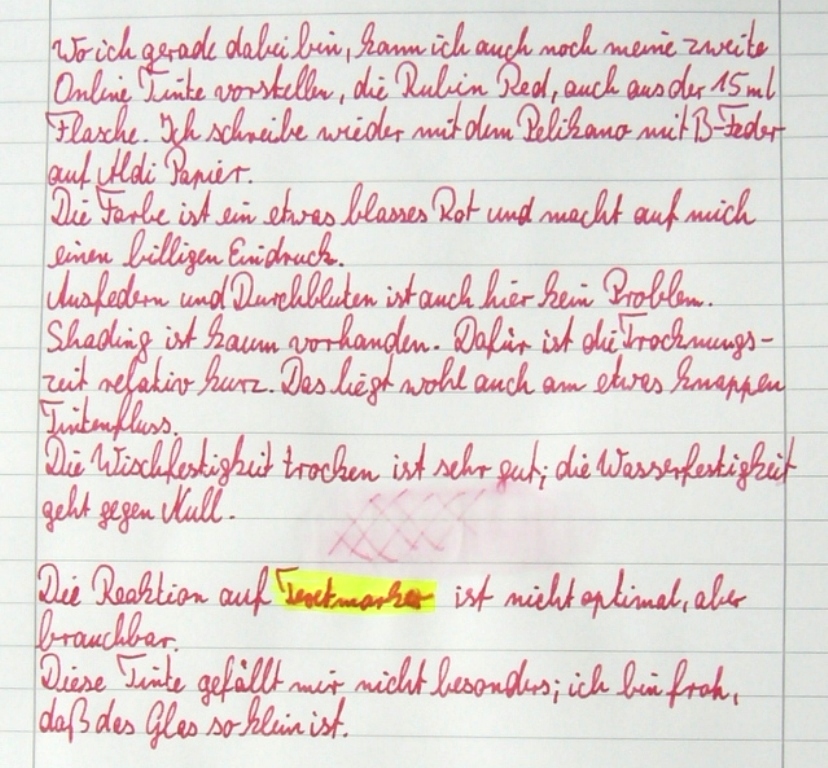 Wo ich gerade dabei bin, kann ich auch noch meine zweite
Online Tinte vorstellen, die Rubin Red, auch aus der 15 ml
Flasche. Ich schreibe wieder mit dem Pelikano mit B-Feder
auf Aldi Papier.
Die Farbe ist ein etwas blasses Rot und macht auf mich
einen billigen Eindruck.
Ausfedern und Durchbluten ist auch hier kein Problem.
Shading ist kaum vorhanden. Dafür ist die Trocknungs-
zeit relativ kurz. Das liegt wohl auch am etwas knappen
Tintenfluss.
Die Wischfestigkeit trocken ist sehr gut; die Wasserfestigkeit
geht gegen Null.
Die Reaktion auf Textmarker ist nicht optimal, aber
brauchbar.
Diese Tinte gefällt mir nicht besonders; ich bin froh,
daß das Glas so klein ist.